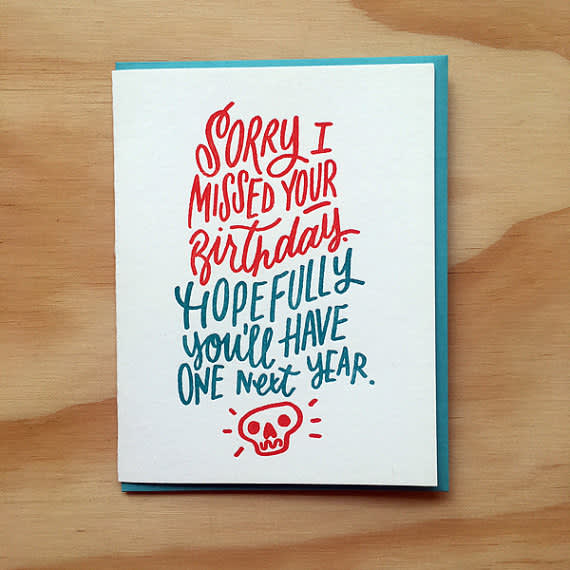 SORRY I
MISSED YOUR
Birthday.
HOPEFULLY
you'll HAVE
ONE Next YEAR.